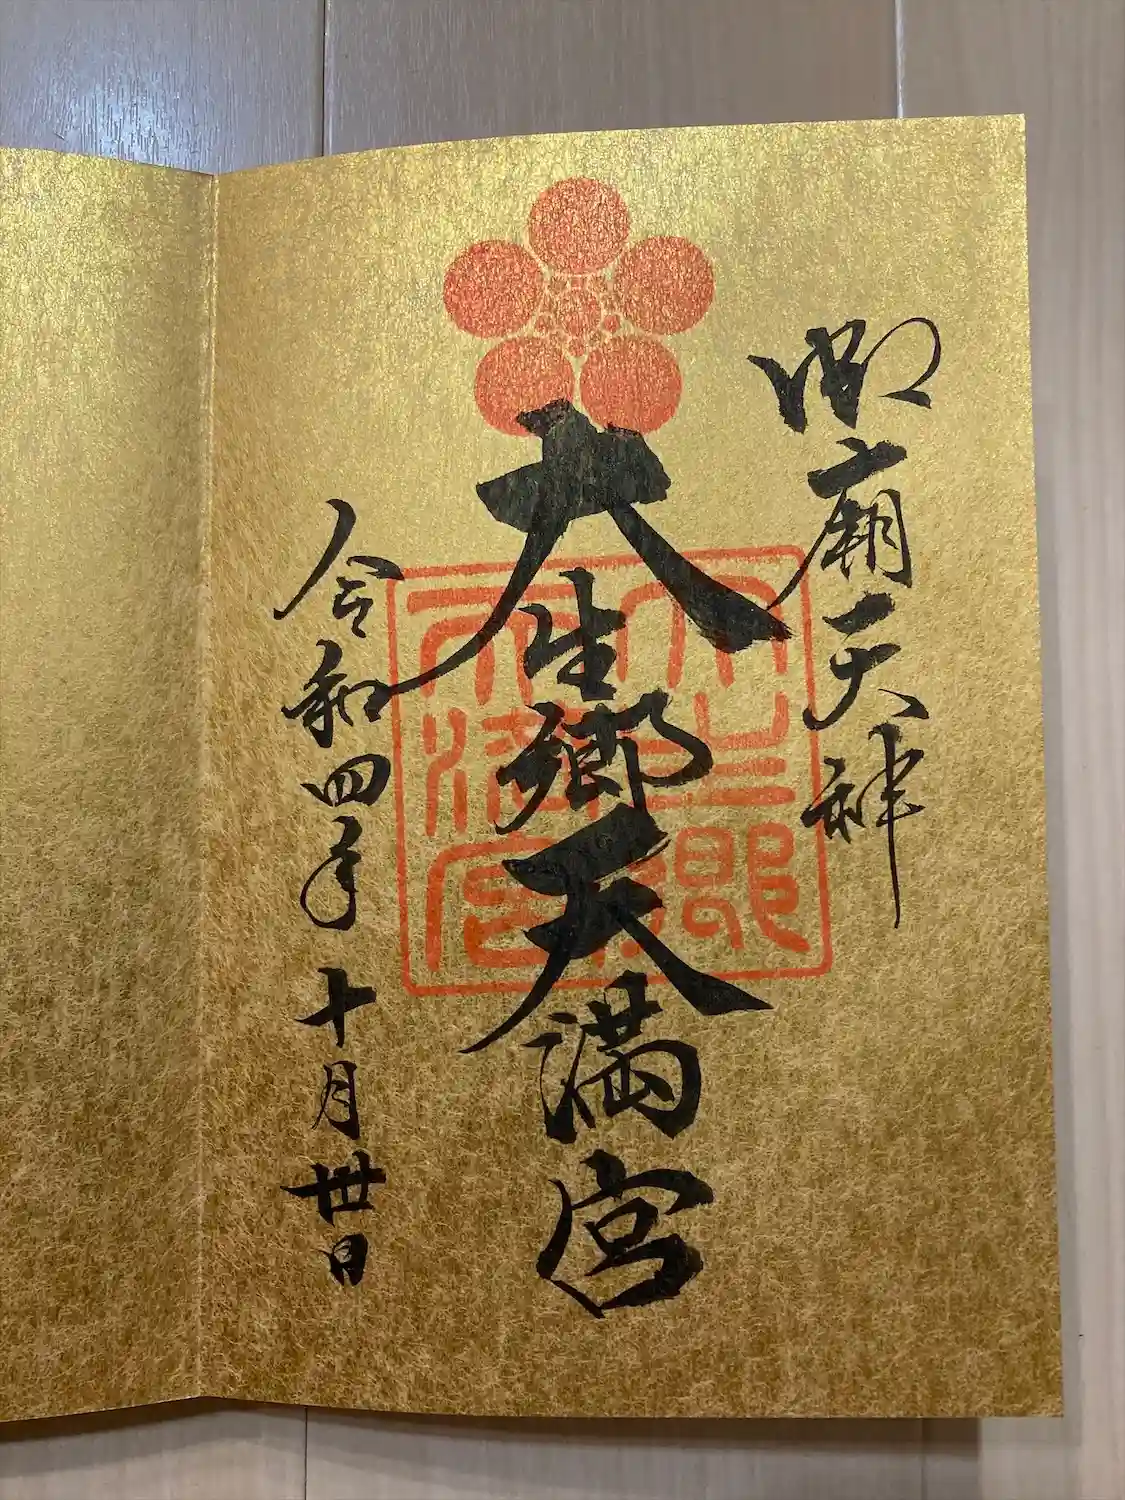 御廟天神
大生郷天満宮
令和四年十月卅日
大生郷天満宮